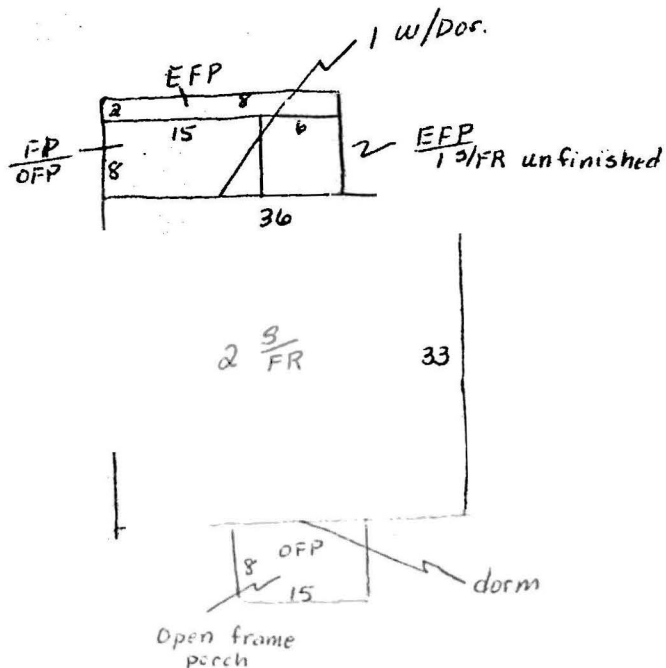 1 W/Dor.
EFP
2
8
15
6
FP
OFP
8
EFP
1 S/FR unfinished
36
2 S/FR
33
8
OFP
15
dorm
Open frame
porch